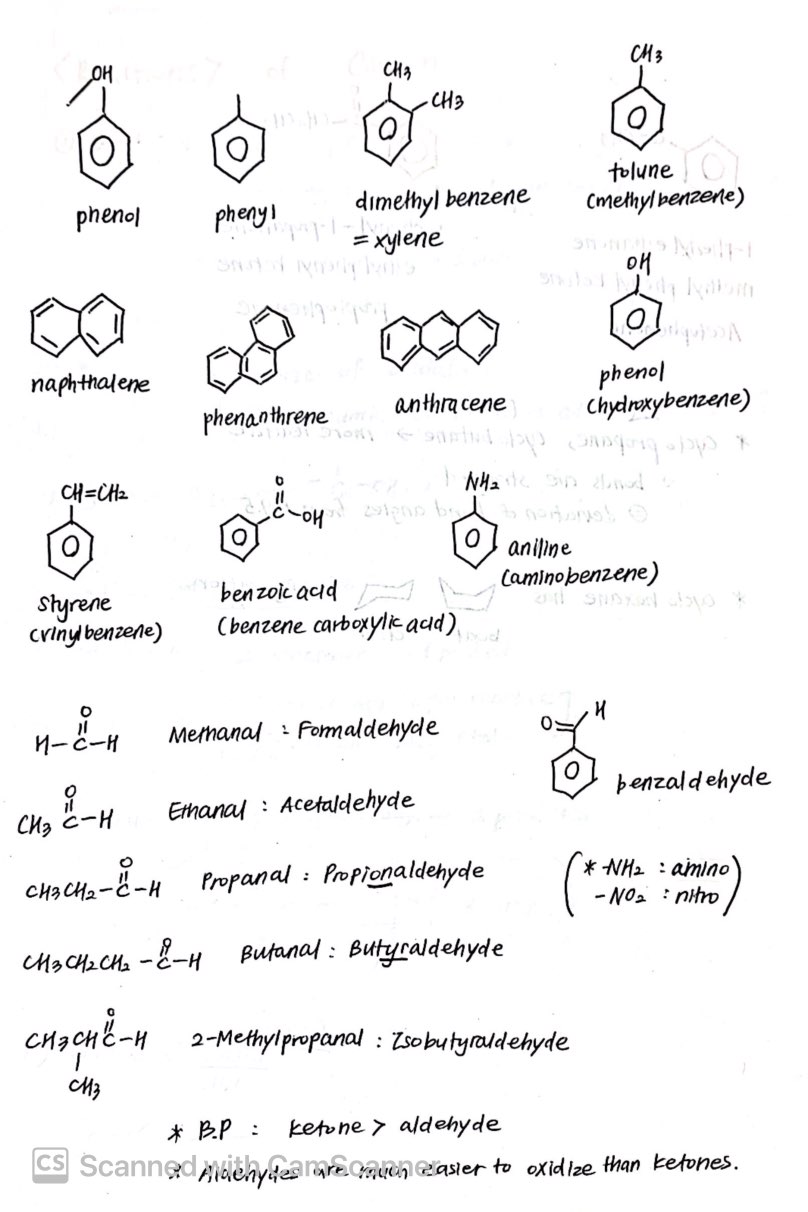 OH
phenol
phenyl
CH3
CH3
dimethyl benzene
= xylene
CH3
tolune
(methylbenzene)
naphthalene
phenanthrene
anthracene
OH
phenol
(hydroxybenzene)
CH=CH2
styrene
(vinylbenzene)
O
C-OH
benzoic acid
(benzene carboxylic acid)
NH2
aniline
(aminobenzene)
O
H-C-H Methanal : Formaldehyde
O
CH3 C-H Ethanal : Acetaldehyde
O H
benzaldehyde
O
CH3CH2-C-H Propanal : Propionaldehyde
(* -NH2 : amino
-NO2 : nitro)
O
CH3CH2CH2-C-H Butanal : Butyraldehyde
O
CH3CHC-H 2-Methylpropanal : Isobutyraldehyde
CH3
* B.P : ketone > aldehyde
* Aldehydes are much easier to oxidize than ketones.
CS Scanned with CamScanner